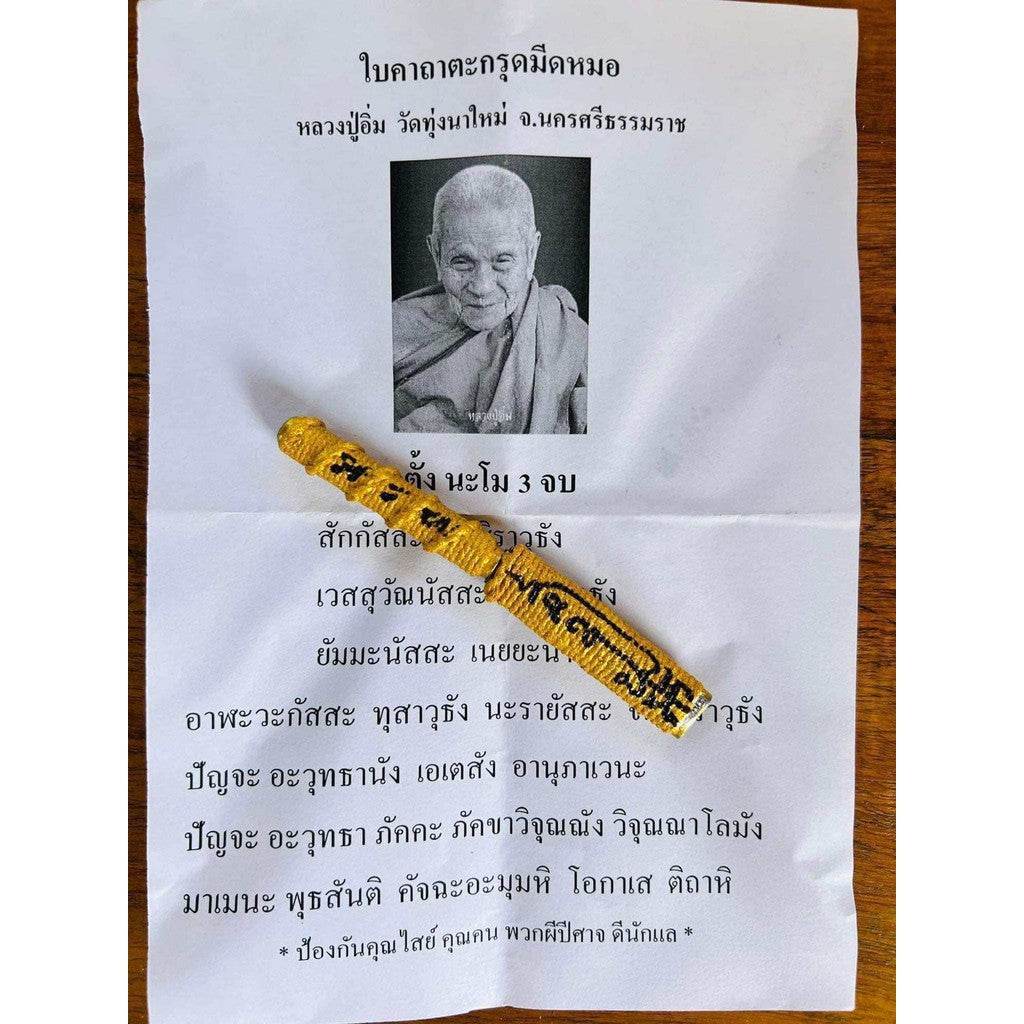 ใบคาถาตะกรุดมีดหมอ
หลวงปู่อิ่ม วัดทุ่งนาใหม่ จ.นครศรีธรรมราช
หลวงปู่อิ่ม
ตั้ง นะโม 3 จบ
สักกัสสะ
เวสสุวัณนัสสะ
ยัมมะนัสสะ
อาฬะวะกัสสะ ทุสาวุธัง นะรายัสสะ
ปัญจะ อะวุทธานัง เอเตสัง อานุภาเวนะ
ปัญจะ อะวุทธา ภัคคะ ภัคขาวิจุณณัง วิจุณณาโลมัง
มาเมนะ พุธสันติ คัจฉะอะมุมหิ โอกาเส ติถาหิ
* ป้องกันคุณไสย์ คุณคน พวกผีปีศาจ ดีนักแล *